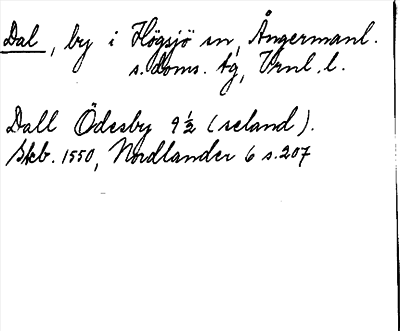 Dal, by i Högsjö sn, Ångermanl.
s. Doms. tg, Vrnl. l.
Dall Ödesby 9 ½ (seland).
Skb. 1550, Nordlander 6 s. 207